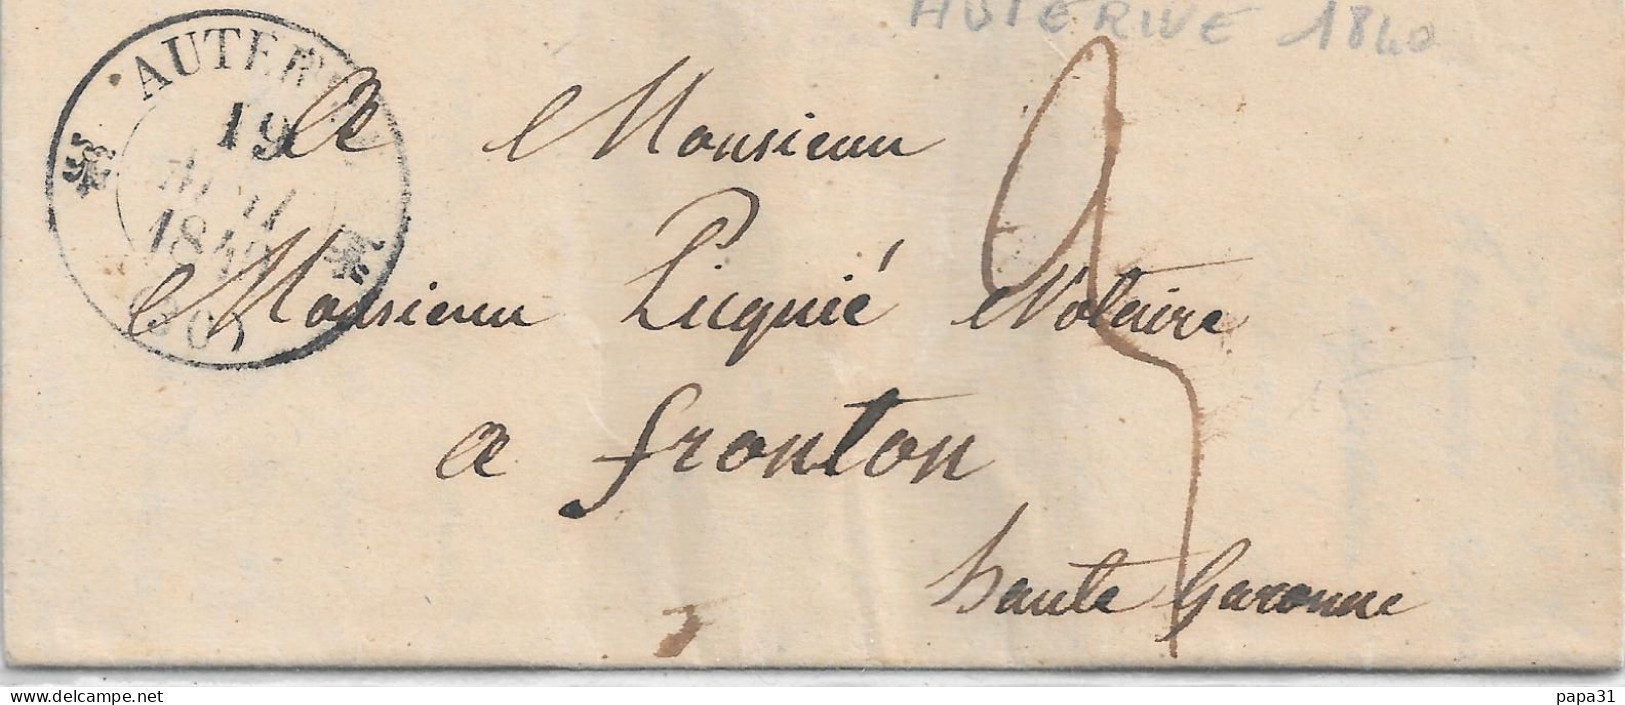 AUTERIVE 1840
AUTER
19
1840
A Monsieur
Monsieur Picquié Notaire
a fronton
haute Garonne
www.delcampe.net
papa31